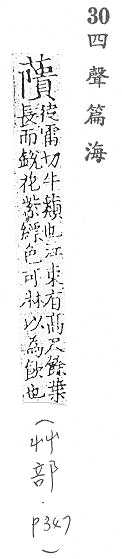 30 四聲篇海
蘈 徒雷切牛蘈也江東有高尺餘葉
長而銳花紫縹色可淋以為飲也
(艸部. p347)